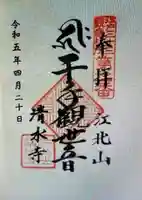 奉拝
江北山
千手観世音
清水寺
令和五年四月二十日